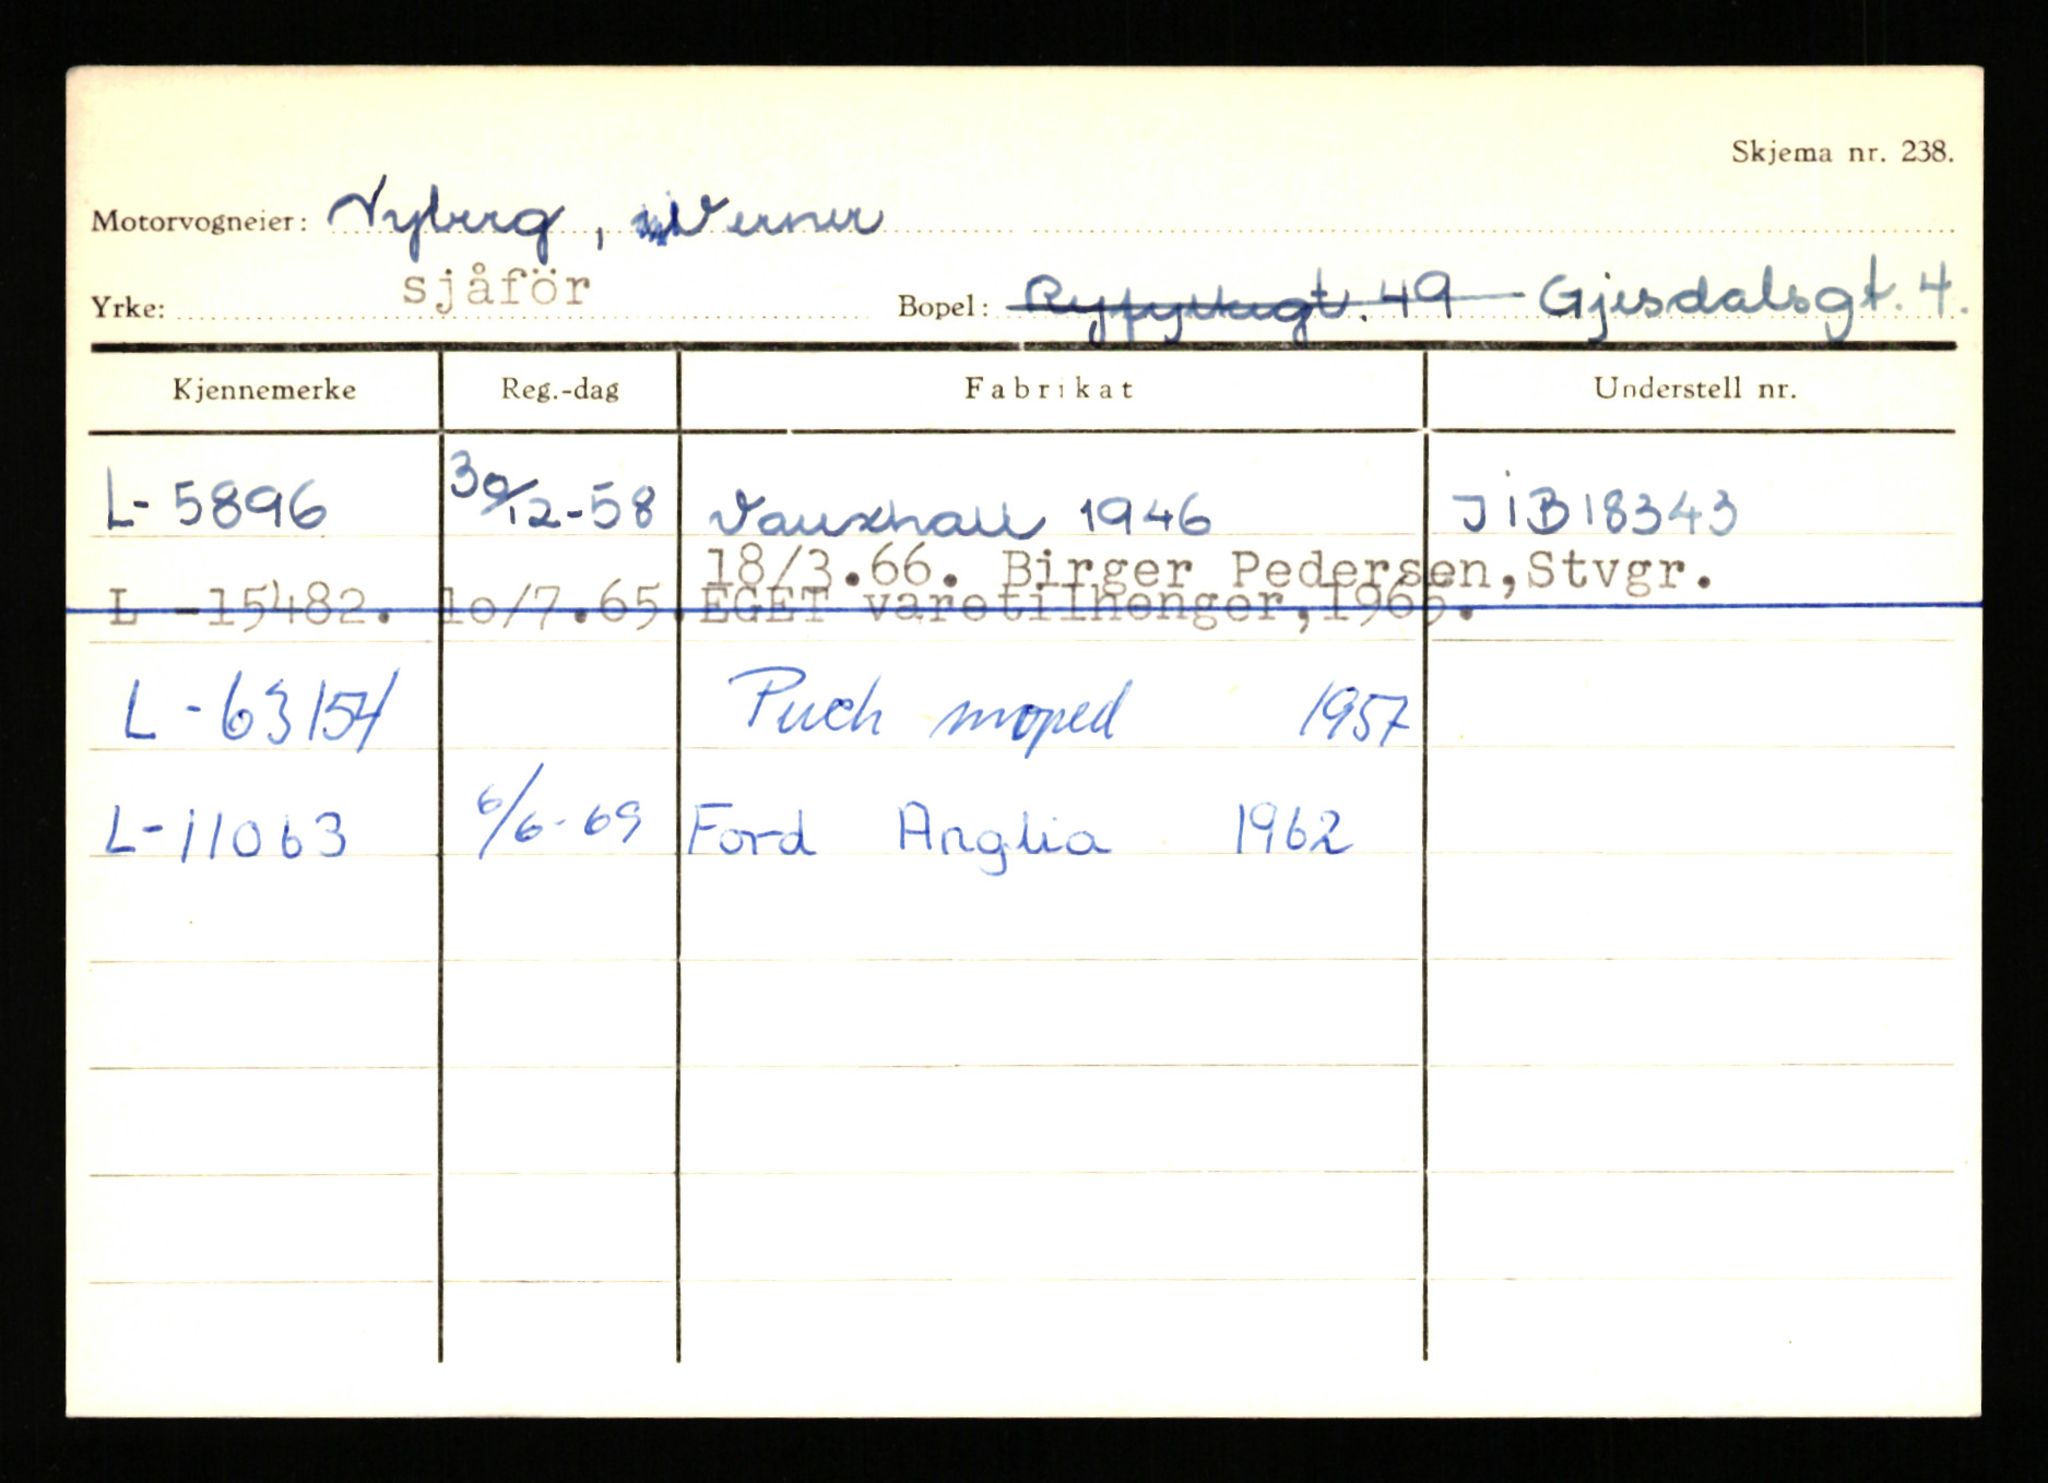 Skjema nr. 238.
Motorvogneier: Nyberg, Verner
Yrke: sjåför Bopel: Ryfylkegt. 49 Gjesdalsgt. 4.
Kjennemerke Reg.-dag Fabrikat Understell nr.
L- 5896 30/12-58 Vauxhall 1946 JIB18343
18/3.66. Birger Pedersen, Stvgr.
L -15482. 10/7.65. EGET varetilhenger, 1965.
L - 63154 Puch moped 1957
L-11063 6/6-69 Ford Anglia 1962